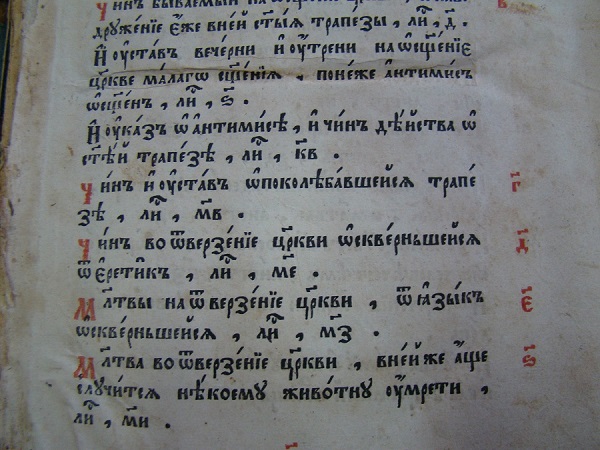 чи́нъ быва́емый на ѡ҆сщ҃е́нїе
дрꙋже́нїе є҆́же вне́й ст҃ы́ѧ трапе́зы, ли́, д҃.
И҆ ᲂу҆ста́въ вече́рни и҆ ᲂу҆́трени на ѡ҆сщ҃е́нїе
цр҃кве ма́лагѡ сщ҃е́нїѧ, поне́же а҆нтими́съ
ѡ҆сщ҃е́нъ, ли́, ѕ҃.
И҆ ᲂу҆ка́зъ ѡ҆ а҆нтими́сѣ, и҆ чи́нъ дѣ́йства ѡ҆
ст҃ѣ́й трапе́зѣ, ли́, к҃в.
чи́нъ и҆ ᲂу҆ста́въ ѡ҆ поколѣба́вшейсѧ трапе́ г҃
зѣ, ли́, м҃в.
Чи́нъ во ѿверзе́нїе цр҃кви ѡ҆скве́рньшейсѧ д҃
ѿ є҆рети́къ, ли́, м҃е.
Мл҃твы на ѿверзе́нїе цр҃кви, ѿ ꙗ҆зы́къ є҃
ѡ҆скве́рньшейсѧ, ли́, м҃з.
Мл҃тва во ѿверзе́нїе цр҃кви, вне́й же а҆́ще ѕ҃
слꙋчи́тсѧ нѣ́коемꙋ живо́тнꙋ ᲂу҆мре́ти,
ли́, м҃и.